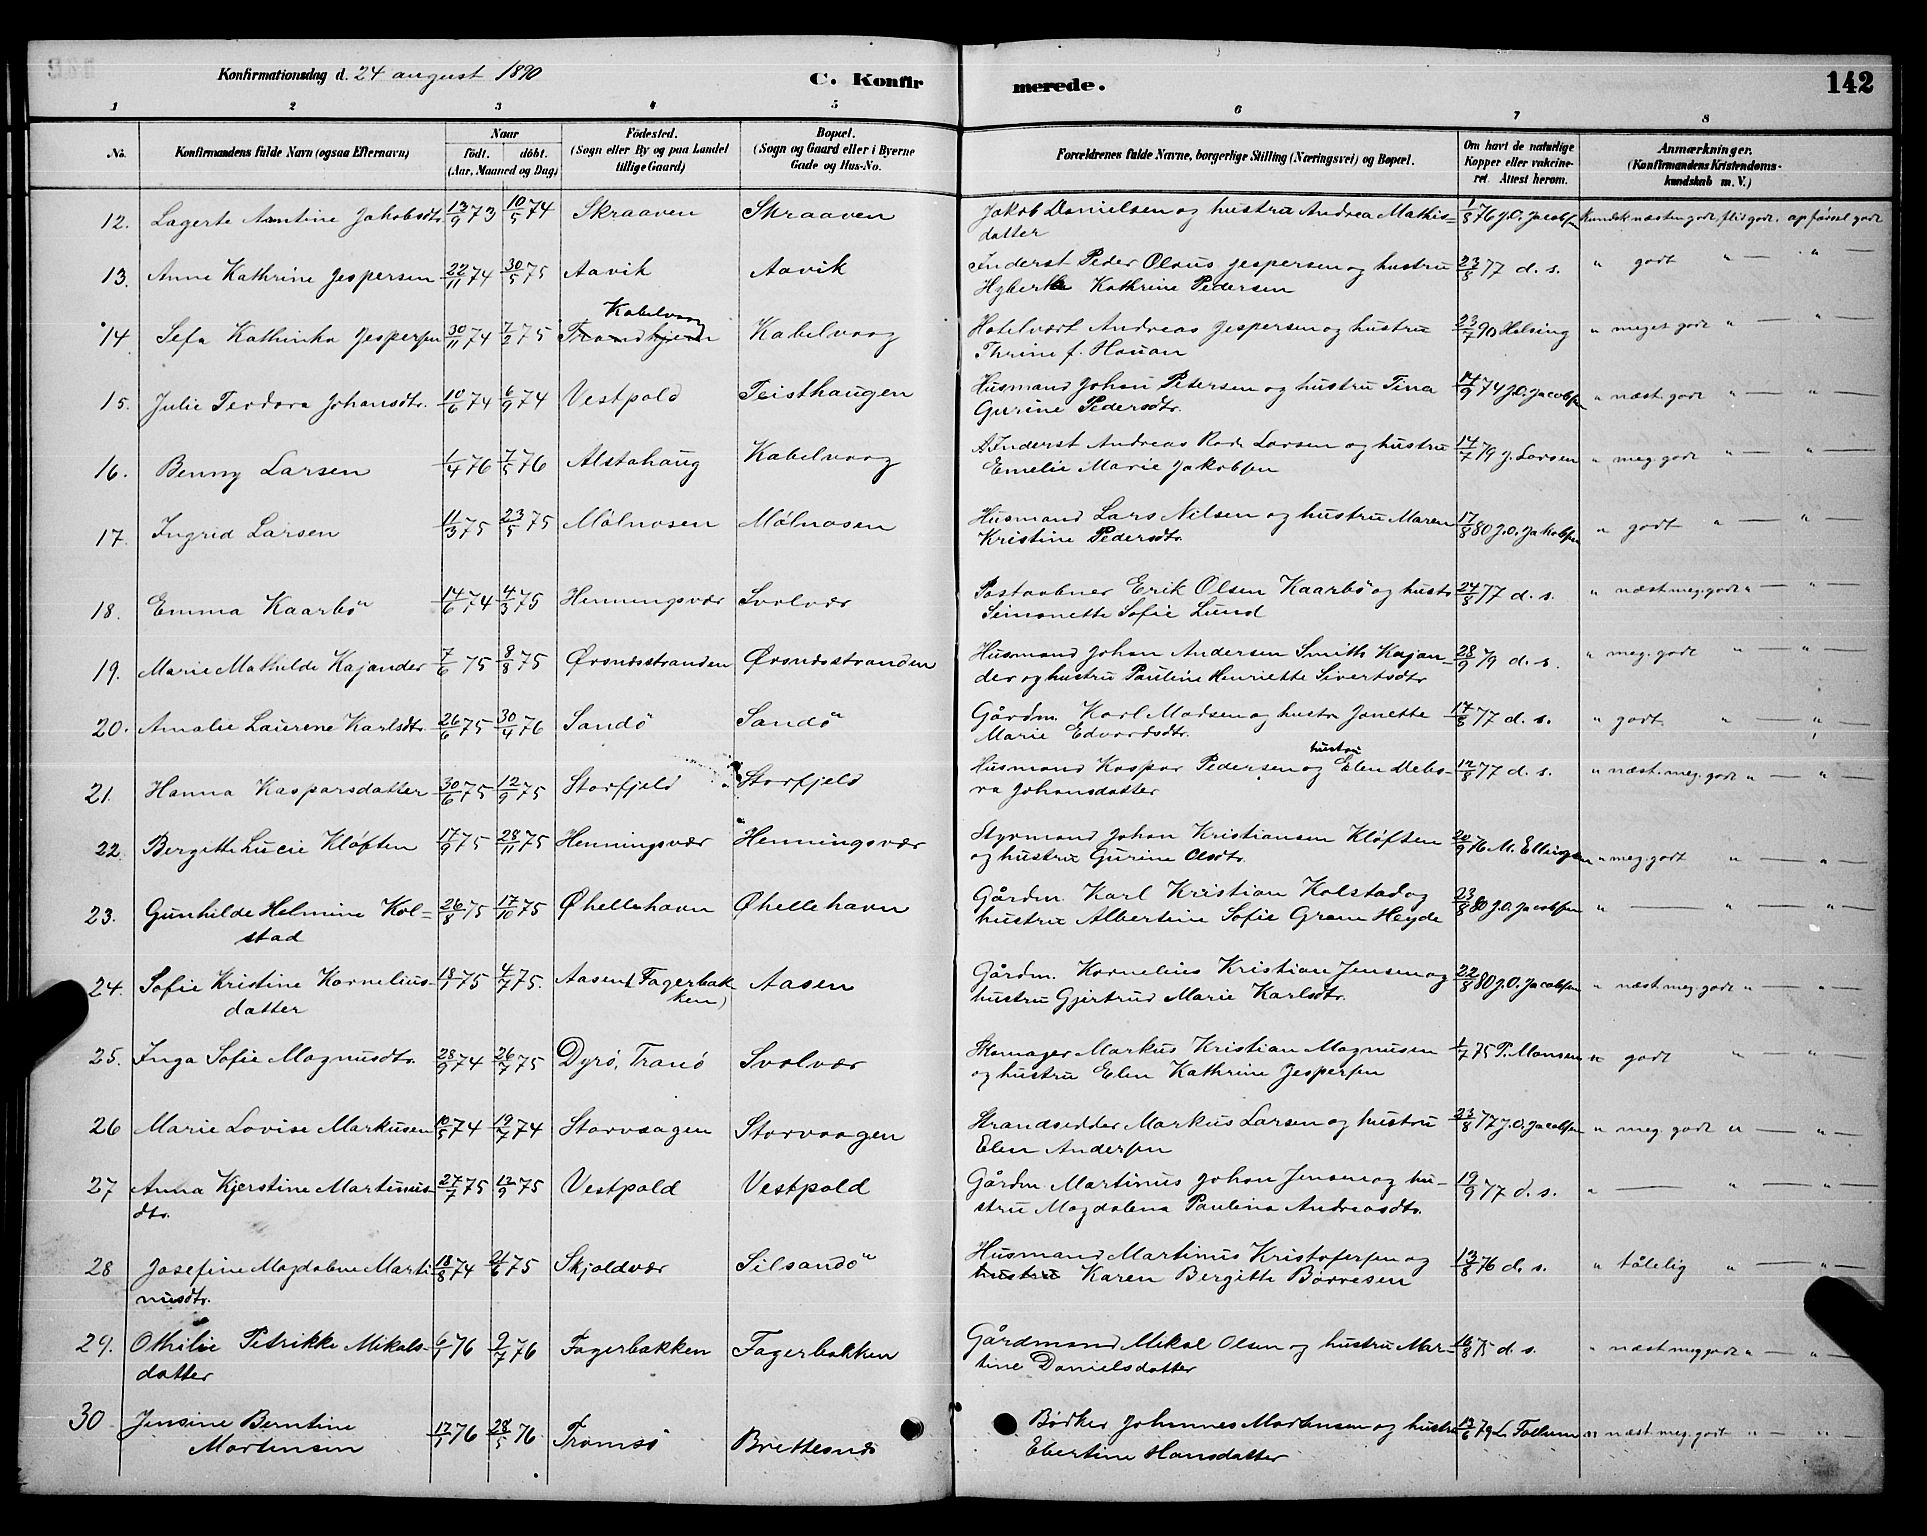 Konfirmationsdag d. 24 august 1890 C. Konfir merede. 142
1 2 3 4 5 6 7 8
No. Konfirmandens fulde Navn (ogsaa Efternavn) Naar født. døbt. (Aar, Maaned og Dag) Fødested. (Sogn eller By og paa Landet tillige Gaard) Bopæl. (Sogn og Gaard eller i Byerne Gade og Hus-No. Forældrenes fulde Navne, borgerlige Stilling (Næringsvei) og Bopæl. Om havt de naturlige Kopper eller vakcineret. Attest herom. Anmærkninger. (Konfirmandens Kristendomskundskab m. V.)
12. Lagerte Antine Jakobsdtr. 13/9 73 10/5 74 Skraaven Skraaven Jakob Danielsen og hustru Andrea Mathis= 1/8 76 J.O. Jacobsen Kundsk. næsten godt, flid godt. opførsel godt
datter
13. Anne Kathrine Jespersen 22/11 74 30/5 75 Aavik Aavik Inderst Peder Olaus Jespersen og hustru 23/8 77 d. s. " godt " — " —
Hyberthe Kathrine Pedersen
Kabelvaag
14 Sefa Kathinka Jespersen 30/11 74 7/2 75 Trondhjem Kabelvaag Hotelvært Andreas Jespersen og hustru 23/7 90 Helsing " meget godt " — " —
Thrine f. Hauan
15. Julie Teodora Johansdtr. 10/6 74 6/9 74 Vestpold Teisthaugen Husmand Johan Petersen og hustru Tina 14/9 74 J.O. Jacobsen " næst. godt " — " —
Gurine Pedersdtr.
16. Benny Larsen 1/4 76 7/5 76 Alstahaug Kabelvaag Inderst Andreas Rod. Larsen og hustru 14/7 79 J. Larsen " meg. godt " — " —
Emelie Marie Jakobsen
17. Ingrid Larsen 11/3 75 23/5 75 Mølnosen Mølnosen Husmand Lars Nilsen og hustru Maren 17/8 80 J.O. Jakobsen " godt " — " —
Kristine Pedersdtr.
18. Emma Kaarbø 14/6 74 4/3 75 Henningsvær Svolvær Postaabner Erik Olsen Kaarbø og hustr 24/8 77 d. s. " næst. meg. godt " — " —
Simonette Sofie Lund
19. Marie Mathilde Kajander 7/6 75 8/8 75 Ørsnesstranden Ørsnesstranden Husmand Johan Andersen Smith Kajan= 28/9 79 d. s. " meg. godt " — " —
der og hustru Pauline Henriette Sivertsdtr
20. Amalie Laurene Karlsdtr. 26/6 75 30/4 76 Sandø Sandø Gårdm. Karl Madsen og hustr Janette 17/8 77 d. s. " godt " — " —
Marie Edvardsdtr.
hustru
21. Hanna Kasparsdatter 30/6 75 12/9 75 Storfjeld Storfjeld Husmand Kaspar Pedersen og Elen Debo- 12/8 77 d. s. " næst. meg. godt " — " —
ra Johansdatter
22. Bergitte Lucie Kløften 17/9 75 28/11 75 Henningsvær Henningsvær Styrmand Johan Kristiansen Kløften 20/9 76 M. Ellingsen " meg. godt " — " —
og hustru Gurine Olsdtr.
23. Gunhilde Helmine Kol= 26/8 75 17/10 75 Øhellehavn Øhellehavn Gårdm. Karl Kristian Kolstad og 23/8 80 J.O. Jacobsen " — " — " —
stad hustru Albertine Sofie Gram Heyde
24. Sofie Kristine Kornelius- 18/1 75 4/7 75. Aasen (Fagerbak- Aasen Gårdm. Kornelius Kristian Jensen og 22/8 80 J.O. Jacobsen " næst. meg. godt " — " —
datter ken) hustru Gjertrud Marie Karlsdtr.
25. Inga Sofie Magnusdtr. 28/9 74 26/7 75 Dyrø, Tranø Svolvær Skomager Markus Kristian Magnusen 1/7 75 P. Monsen " godt " — " —
og hustru Elen Kathrine Jespersen
26 Marie Lovise Markusen 10/5 74 19/7 74 Storvaagen Storvaagen Strandsidder Markus Larsen og hustru 23/8 77 J.O. Jacobsen " meg. godt " — " —
Elen Andersen
27 Anna Kjerstine Martinus- 27/7 75 12/9 75 Vestpold Vestpold Gårdm. Martinus Johan Jensen og hu- 19/9 77 d. s. " — " — " —
dtr. stru Magdalena Paulina Andreasdtr.
28 Josefine Magdalene Marti 18/8 74 21/6 75 Skjoldvær Silsandø Husmand Martinus Kristofersen og 13/8 76 d. s. " tålelig " — " —
nusdtr. hustru Karen Bergitte Børresen
29. Othilie Petrikke Mikals- 6/1 76 9/7 76 Fagerbakken Fagerbakken Gårdmand Mikal Olsen og hustru Mar- 16/8 75 d. s. " næst meg godt " — " —
datter tine Danielsdatter
30 Jensine Berntine 17/1 76 28/5 76 Tromsø Brettesnes Bødker Johannes Mortensen og hustru 13/6 79 L. Follum " næst. meg. godt " — " —
Mortensen Ebertine Hansdatter